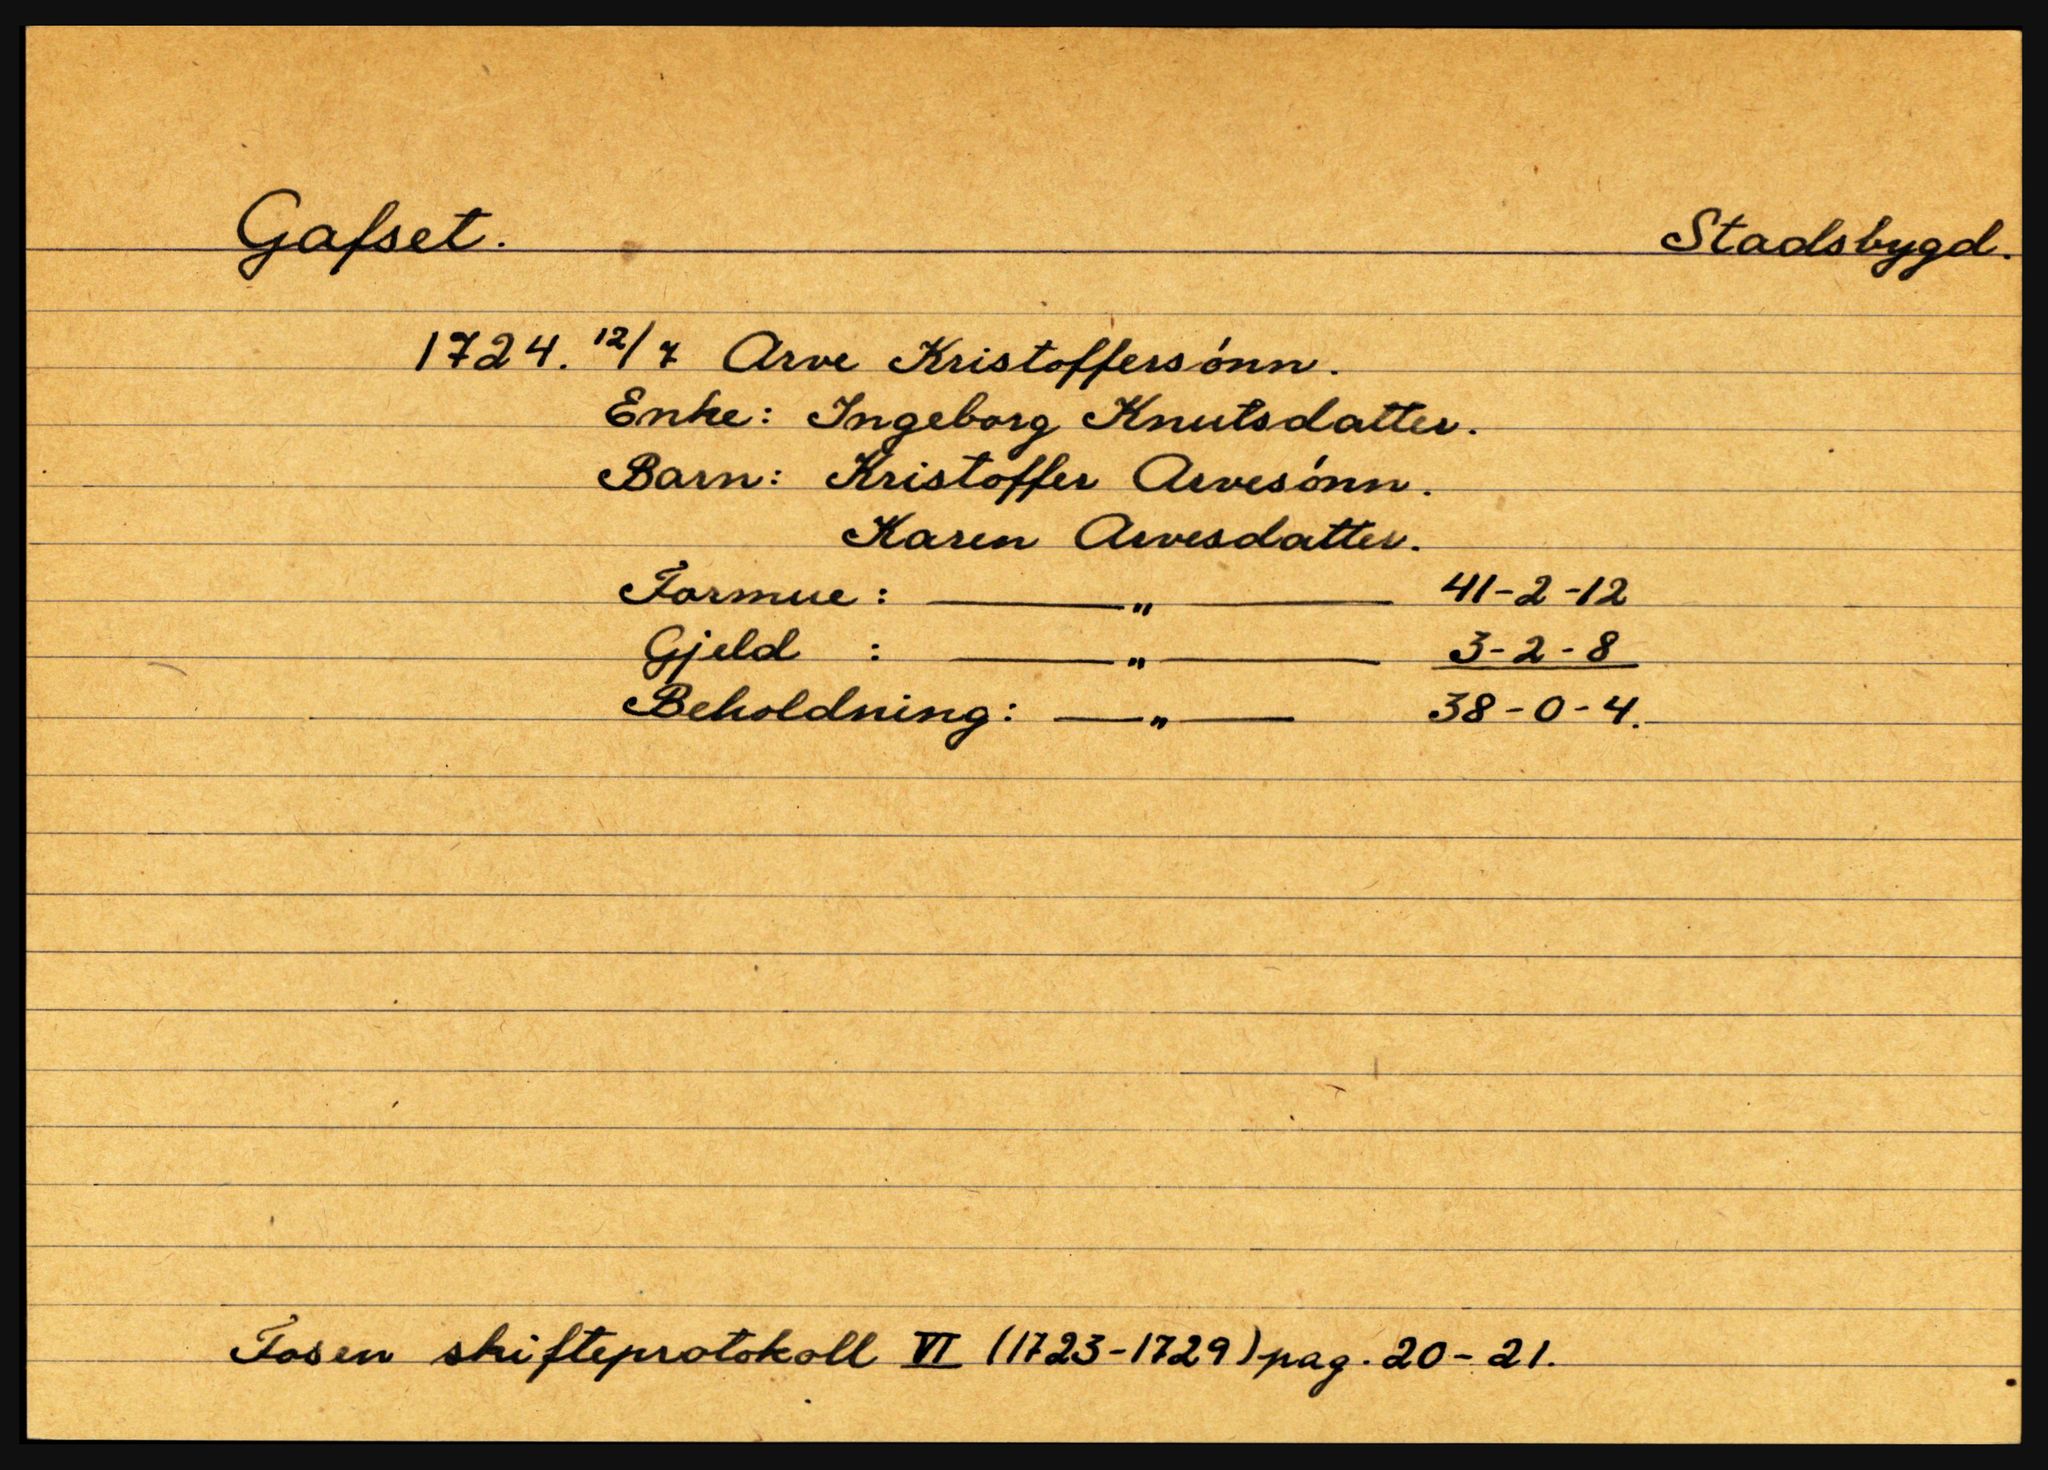 Gafset. Stadsbygd.
1724. 12/7 Arve Kristoffersónn.
Enke: Ingeborg Knutsdatter.
Barn: Kristoffer Arvesónn.
Karen Arvesdatter.
Formue: —„— 41-2-12
Gjeld : —„— 3-2-8
Beholdning: —„— 38-0-4.
Fosen skifteprotokoll VI (1723-1729) pag. 20-21.